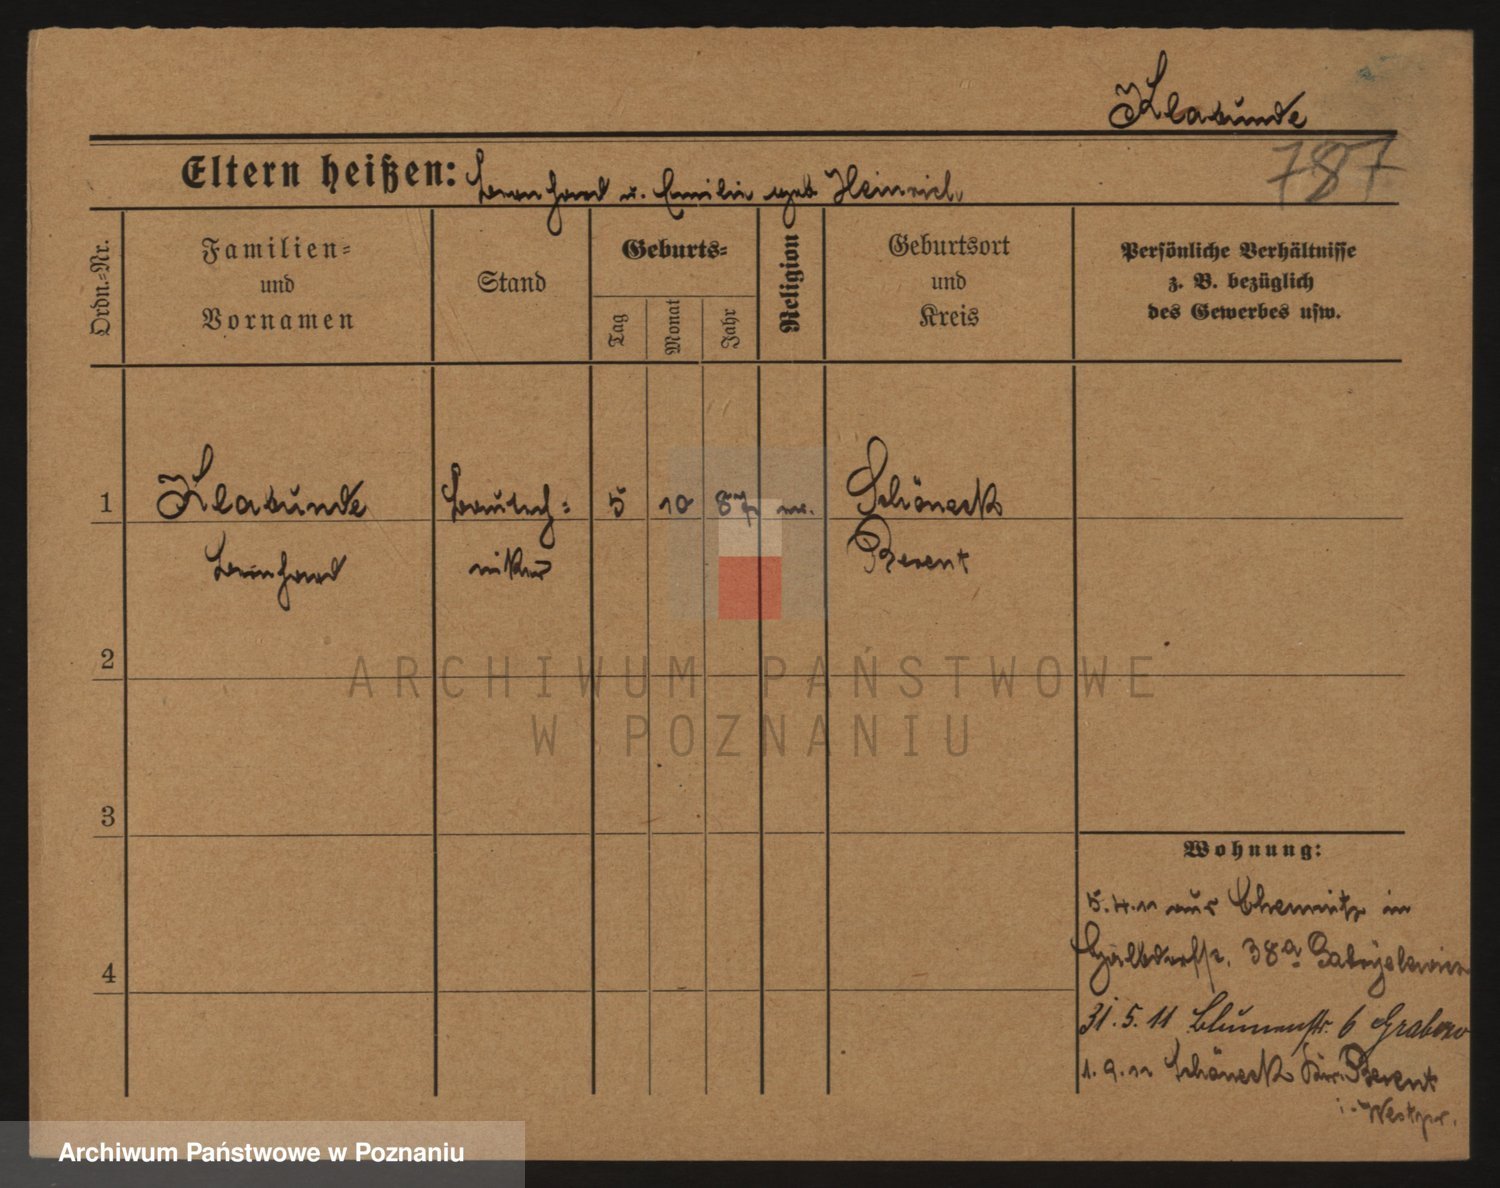 Klawunde
787
Eltern heißen: Bernhard u. Emilie geb Heinrich
Ordn.-Nr.
Familien-
und
Vornamen
Stand
Geburts-
Tag
Monat
Jahr
Religion
Geburtsort
und
Kreis
Persönliche Verhältnisse
z. B. bezüglich
des Gewerbes usw.
1
Klawunde
Bautech-
5
10
87
Schöneck
Bernhard
niker
Berent
2
ARCHIWUM PAŃSTWOWE
W POZNANIU
3
Wohnung:
5.4.11 aus Chemnitz in
38a
4
31.5.11 Blumenstr. 6 Grabow
1.9.11 Schöneck Kr. Berent
i. Westpr.
Archiwum Państwowe w Poznaniu